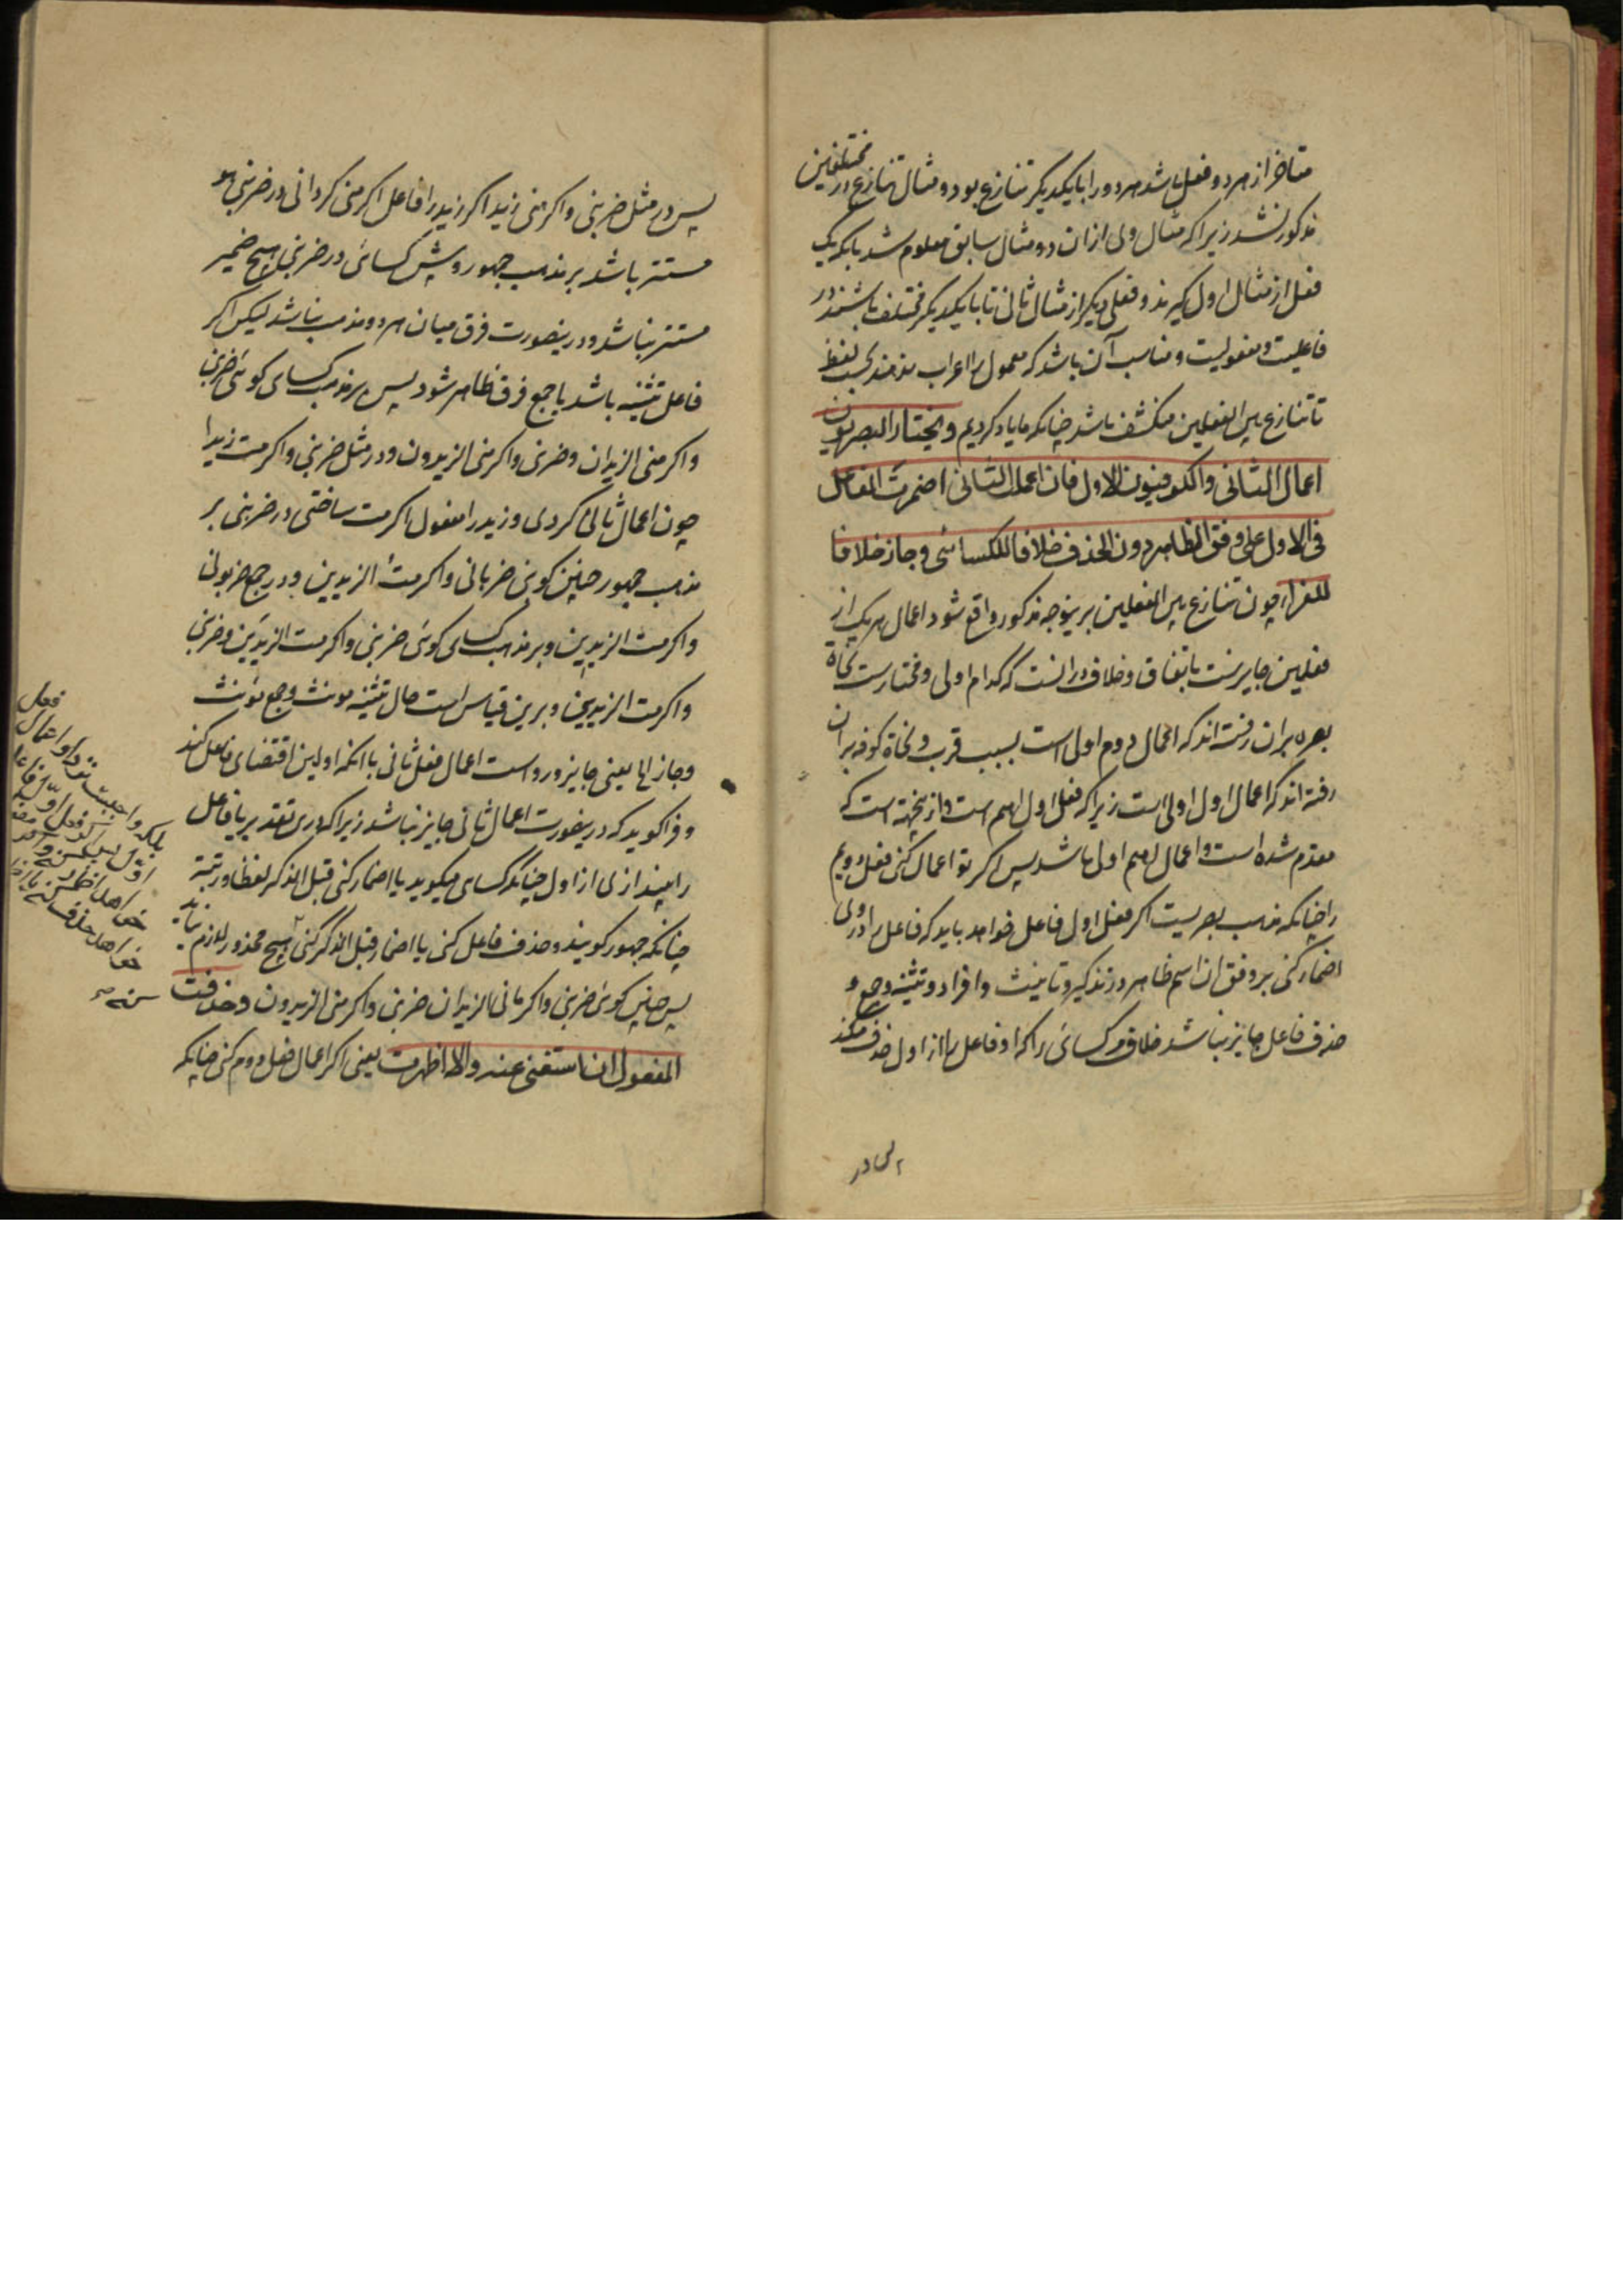 متاخر از هر دو فعل باشد هر دو را با یکدیکر تنازع بود و مثال تنازع در مختلفین
مذکور نشد زیرا که مثال وی ازان دو مثال سابق معلوم شد بانکه یک
فعل از مثال اول کیرند و فعلی دیکر از مثال ثانی تا با یکدیکر مختلف باشند در
فاعلیت و مفعولیت و مناسب آن باشد که معمول را اعراب ندهند بحسب لفظ
تا تنازع بین الفعلین منکشف باشد چنانکه ما یاد کردیم و یختار البصریون
اعمال الثانی والکوفیون الاول فان اعملت الثانی اضمرت الفاعل
فی الاول علی وفق الظاهر دون الحذف خلافا للکسائی وجاز خلافا
للفراء چون تنازع بین الفعلین برینوجه مذکور واقع شود اعمال هر یک از
فعلین جایزست باتفاق و خلاف در انست که کدام اولی و مختارست نحاة
بصره بران رفته اند که اعمال دوم اولی است بسبب قرب و نحاة کوفه بران
رفته اند که اعمال اول اولی است زیرا که فعل اول اهم است و ازینجهته است که
مقدم شده است و اعمال اهم اولی باشد پس اکر تو اعمال کنی فعل دویم
را چنانکه مذهب بصریست اکر فعل اول فاعل خواهد باید که فاعل را در وی
اضمار کنی بر وفق ان اسم ظاهر در تذکیر و تانیث و افراد و تثنیه و جمع و
حذف فاعل جایز نباشد خلاف مر کسائی را که او فاعل را از اول حذف میکند
پس در
پس در مثل ضربنی و اکرمنی زید اکر زید را فاعل اکرمنی کردانی در ضربنی هو
مستتر باشد بر مذهب جمهور و پیش کسائی در ضربنی هیچ ضمیر
مستتر نباشد و درینصورت فرق میان هر دو مذهب نباشد لیکن اکر
فاعل تثنیه باشد یا جمع فرق ظاهر شود پس بر مذهب کسای کوئی ضربنی
و اکرمنی الزیدان و ضربنی و اکرمنی الزیدون و در مثل ضربنی و اکرمت زیدا
چون اعمال ثانی کردی و زید را مفعول اکرمت ساختی در ضربنی بر
مذهب جمهور چنین کوئی ضربانی و اکرمت الزیدین و در جمع ضربونی
و اکرمت الزیدین و بر مذهب کسای کوئی ضربنی و اکرمت الزیدین و ضربنی
و اکرمت الزیدین و برین قیاس است حال تثنیه مونث و جمع مونث
و جاز الی یعنی جایز و رواست اعمال فعل ثانی با انکه اولین اقتضای فاعل کند
و فرا کوید که درینصورت اعمال ثانی جایز نباشد زیرا که درین تقدیر یا فاعل
را بیندازی از اول چنانکه کسای میکوید یا اضمار کنی قبل الذکر لفظا و رتبة
چنانکه جمهور کویند و حذف فاعل کنی یا اضمار قبل الذکر کنی هیچ محذور لازم نیاید
پس چنین کوئی ضربنی و اکرمانی الزیدان ضربنی و اکرمنی الزیدون و حذفت
المفعول ان استغنی عنه والا اظهرت یعنی اکر اعمال فعل دوم کنی چنانکه
فعل
بلکه واجبست نزد او اعمال